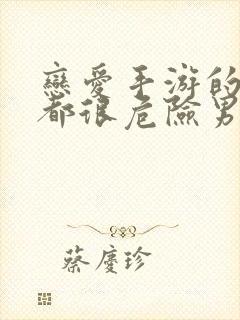 戀愛手游的
都很危險男
蔡慶珍